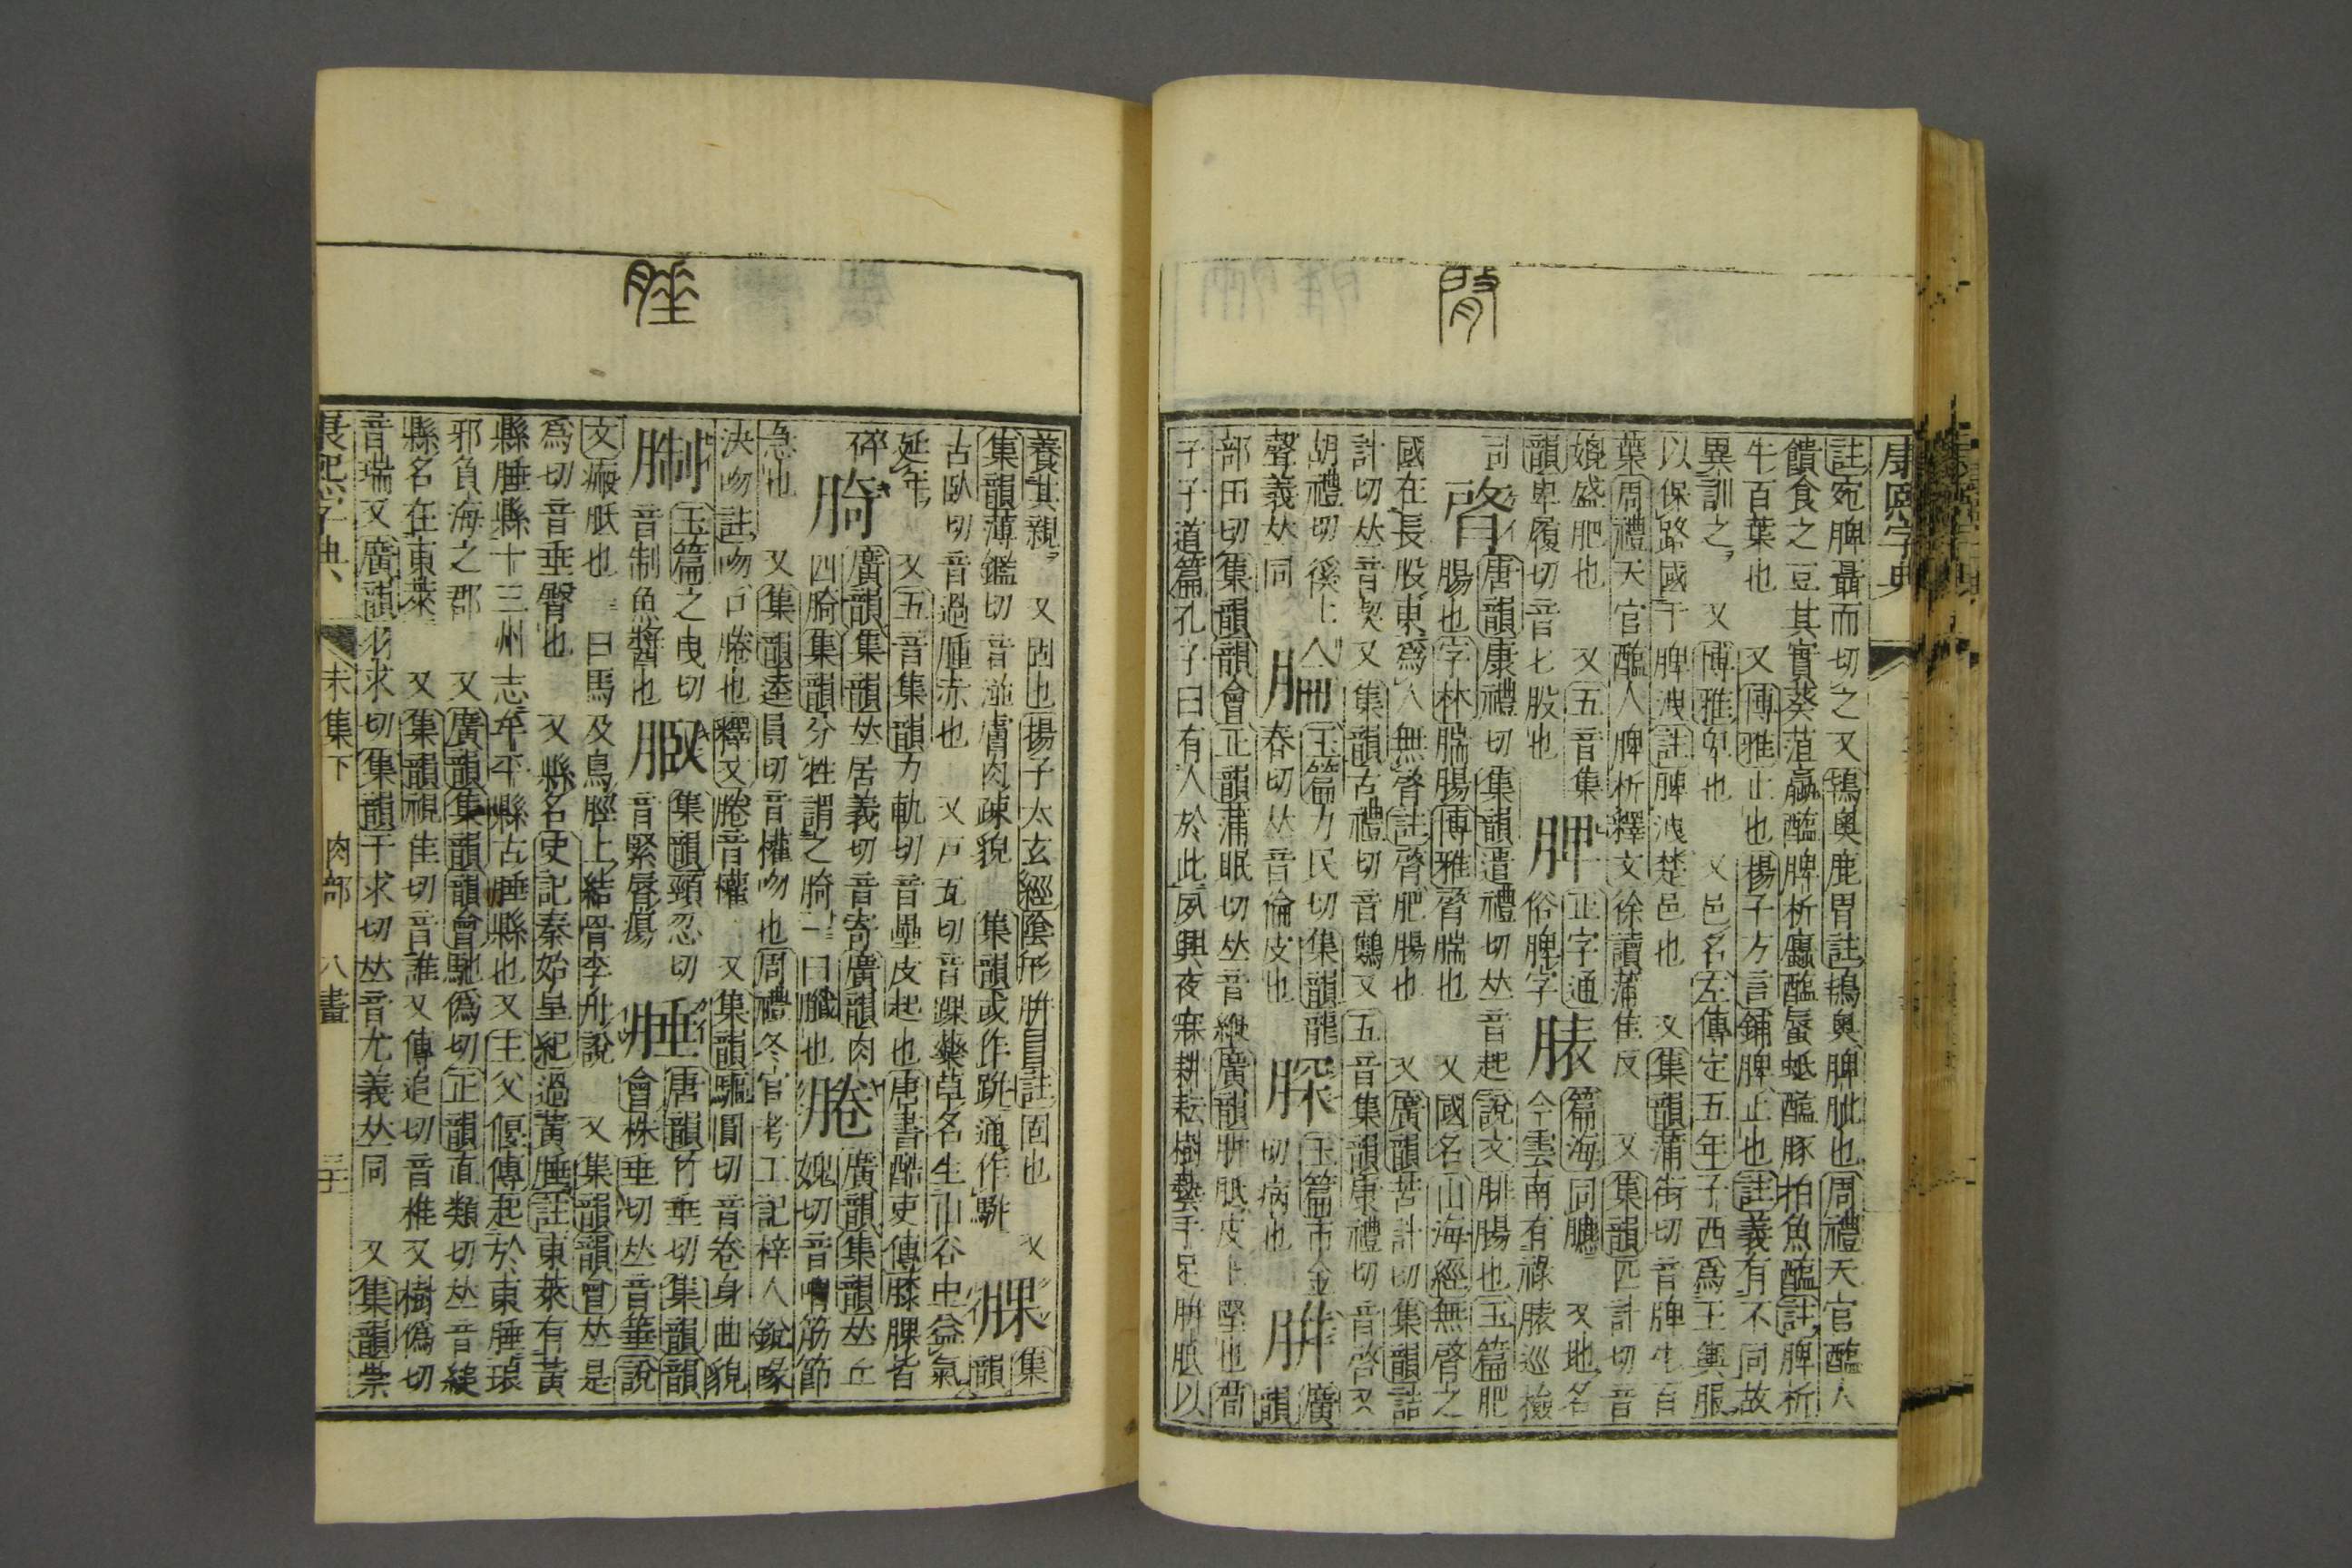 康熙字典
註宛脾聶而切之又鴇奧鹿胃註鴇奧脾胵也周禮天官醢人
饋食之豆其實葵菹蠃醢脾析蠯醢蜃蚳醢豚拍魚醢註脾析
牛百葉也 又博雅止也揚子方言鋪脾止也註義有不同故
異訓之 又博雅卑也 又邑名左傳定五年子西爲王輿服
以保路國于脾洩註脾洩楚邑也 又集韻蒲街切音牌牛百
葉周禮天官醢人脾析釋文徐讀蒲隹反 又集韻匹計切音
媲盛肥也 又五音集韻卑履切音匕股也
脾 正字通俗脾字
脿 篇海同臕 又地名今雲南有祿脿巡檢司
䏿 唐韻康禮切集韻遣禮切𠀤音起說文腓腸也玉篇肥腸也字林腨腸博雅䏿腨也 又國名山海經無䏿之
國在長股東爲人無䏿註䏿肥腸也 又廣韻苦計切集韻詰
計切𠀤音契又集韻古禮切音鷄又五音集韻康禮切音啓又
胡禮切徯上聲義𠀤同
腀 玉篇力民切集韻龍春切𠀤音倫皮也
䐆 玉篇市金切病也
胼 廣韻部田切集韻韻會正韻蒲眠切𠀤音緶廣韻胼胝皮上堅也荀
子子道篇孔子曰有人於此夙興夜寐耕耘樹藝手足胼胝以
養其親 又固也揚子太玄經陰形胼冒註固也 又
集韻薄鑑切音湴膚肉疎貌 集韻或作跰通作駢
腂 集韻
古臥切音過腫赤也 又戸瓦切音踝藥草名生山谷中益氣
延年 又五音集韻力軌切音壘皮起也唐書酷吏傳膝腂皆
碎
䐀 廣韻集韻𠀤居義切音寄廣韻肉四䐀集韻分牲謂之䐀一曰臟也
腃 廣韻集韻𠀤丘媿切音喟筋節
急也 又集韻逵員切音權吻也周禮冬官考工記梓人銳喙
決吻註吻口腃也釋文腃音權 又集韻驅圓切音卷身曲貌
䏯 玉篇之曳切音制魚醬也
䐜 集韻頸忍切音緊脣瘍
腄 唐韻竹垂切集韻韻會株垂切𠀤音箠說
文瘢胝也一曰馬及鳥脛上結骨李舟說 又集韻韻會𠀤是
爲切音垂臀也 又縣名史記秦始皇紀過黃腄註東萊有黃
縣腄縣十三州志牟平縣古腄縣也又主父偃傳起於東腄琅
邪負海之郡 又廣韻集韻韻會馳僞切正韻直類切𠀤音縋
縣名在東萊 又集韻視隹切音誰又傳追切音椎又樹僞切
音瑞又廣韻羽求切集韻于求切𠀤音尤義𠀤同 又集韻祟
康熙字典 未集下 肉部 八畫